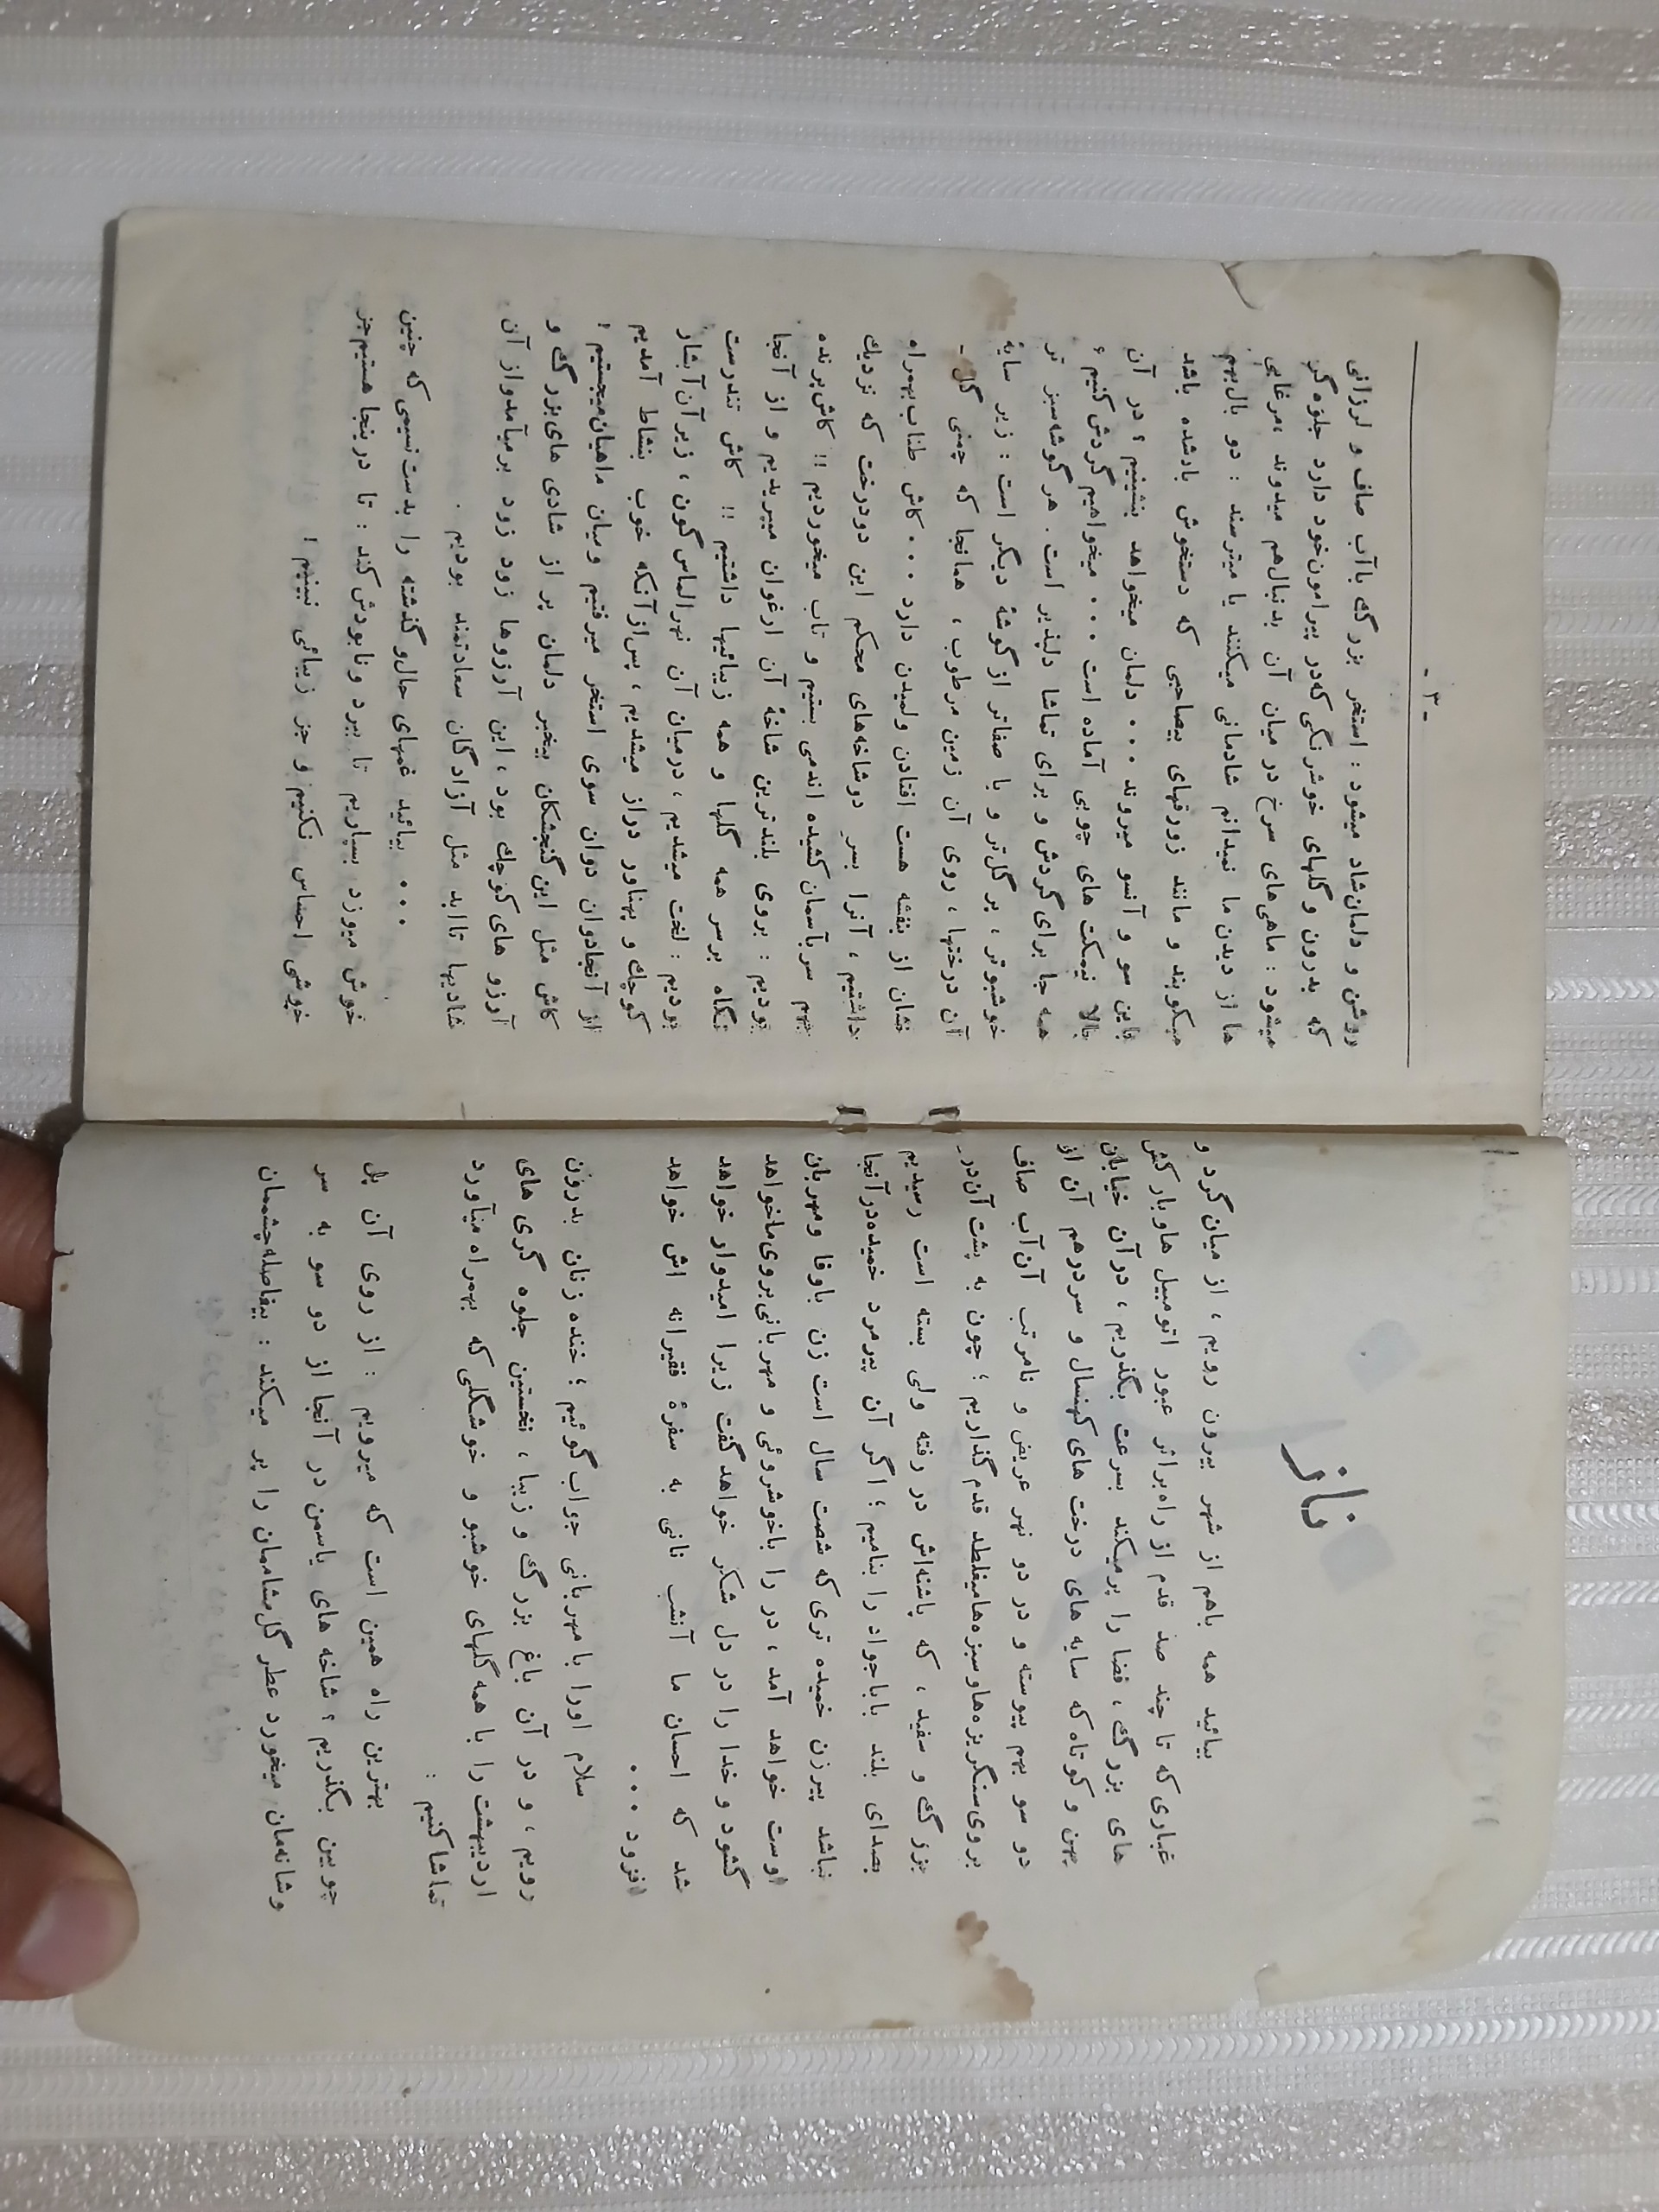 ناز
بیائید همه باهم از شهر بیرون رویم ، از میان گرد و
غباری که تا چند صد قدم از راه براثر عبور اتومبیل هاوبارکش
های بزرگ ، فضا را پرمیکند بسرعت بگذریم ، درآن خیابان
پهن و کوتاه که سایه های درخت های کهنسال و سردرهم آن از
دو سو بهم پیوسته و در دو نهر عریض و نامرتب آن آب صاف
بروی سنگریزه هاوسبزه هامیغلطد قدم گذاریم ؛ چون به پشت آن در
بزرگ و سفید ، که پاشنه‌اش در رفته ولی بسته است رسیدیم
بصدای بلند باباجواد را بنامیم ؛ اگر آن پیرمرد خمیده درآنجا
نباشد پیرزن خمیده تری که شصت سال است زن باوفا ومهربان
اوست خواهد آمد ، در را باخوشروئی و مهربانی بروی ماخواهد
گشود و خدا را در دل شکر خواهدگفت زیرا امیدوار خواهد
شد که احسان ما آنشب نانی به سفرهٔ فقیرانه اش خواهد
افزود ...
سلام اورا با مهربانی جواب گوئیم ؛ خنده زنان بدرون
رویم ، و در آن باغ بزرگ و زیبا ، نخستین جلوه گری های
اردیبهشت را با همه گلهای خوشبو و خوشگلی که بهمراه میآورد
تماشا کنیم :
بهترین راه همین است که میرویم : از روی آن پل
چوبین بگذریم ؟ شاخه های یاسمن در آنجا از دو سو به سر
وشانه‌مان میخورد عطر گل مشاممان را پر میکند : بیفاصله چشممان
- ۳ -
روشن و دلمان شاد میشود : استخر بزرگ باآب صاف و لرزانی
که بدرون و گلهای خوشرنگی که‌در پیرامون خود دارد جلوه‌گر
میشود : ماهی های سرخ در میان آن بدنبال هم میدوند ،مرغابی
ها از دیدن ما نمیدانم شادمانی میکنند یا میترسند : دو بال بهم
میکوبند و مانند زورقهای بیصاحبی که دستخوش بادشده باشد
باین سو و آنسو میروند ... دلمان میخواهد بنشینیم ؟ در آن
بالا نیمکت های چوبی آماده است ... میخواهیم گردش کنیم ؟
همه جا برای گردش و برای تماشا دلپذیر است . هر گوشه سبز تر
خوشبوتر ، پرگل‌تر و با صفاتر از گوشهٔ دیگر است : زیر سایهٔ
آن درختها ، روی آن زمین مرطوب ، همانجا که چمنی گل -
نشان از بنفشه هست افتادن ولمیدن دارد ... کاش طناب بهمراه
داشتیم ، آنرا بسر دوشاخه‌های محکم این دودرخت که نزدیک
بهم سربآسمان کشیده اندمی بستیم و تاب میخوردیم !! کاش پرنده
بودیم : بروی بلندترین شاخهٔ آن ارغوان میپریدیم و از آنجا
نگاه برسر همه گلها و همه زیبائیها داشتیم !! کاش تندرست
بودیم : لخت میشدیم ، درمیان آن نهرالماس گون ، زیر آن آبشار
کوچک و پهناور دراز میشدیم ، پس‌ازآنکه خوب بنشاط آمدیم
از آنجادوان دوان سوی استخر میرفتیم ومیان ماهیان میجستیم !
کاش مثل این گنجشکان بیخبر دلمان پر از شادی های بزرگ و
آرزو های کوچک بود ، این آرزوها زود زود برمیآمدواز آن
شادیها تاابد مثل آزادگان سعادتمند بودیم .
... بیائید غمهای حال‌و گذشته را بدست نسیمی که چنین
خوش میوزد بسپاریم تا ببرد ونابودش کند : تا دراینجا هستیم‌جز
خوشی احساس نکنیم و جز زیبائی نبینیم !